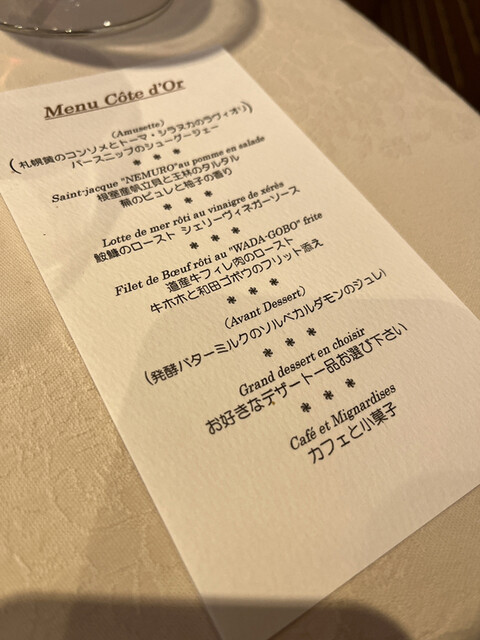 Menu Côte d'Or
（Amusette）
（札幌黄のコンソメとトーマ・シラヌカのラヴィオリ）
パースニップのシューグージェー
＊ ＊ ＊
Saint-jacque "NEMURO"au pomme en salade
根室産帆立貝と王林のタルタル
蕪のピュレと柚子の香り
＊ ＊ ＊
Lotte de mer rôti au vinaigre de xérès
鮟鱇のロースト シェリーヴィネガーソース
＊ ＊ ＊
Filet de Bœuf rôti au "WADA-GOBO" frite
道産牛フィレ肉のロースト
牛ホホと和田ゴボウのフリット添え
＊ ＊ ＊
（Avant Dessert）
（発酵バターミルクのソルベカルダモンのジュレ）
＊ ＊ ＊
Grand dessert en choisir
お好きなデザート一品お選び下さい
＊ ＊ ＊
Café et Mignardises
カフェと小菓子